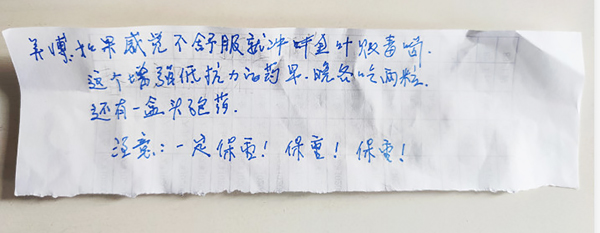 美傳，如果感觉不舒服就冲鲜鱼叶败毒喝.
这个增强低抗力的药早.晚各吃两粒.
还有一盒头孢药.
注意:一定保重！保重！保重！